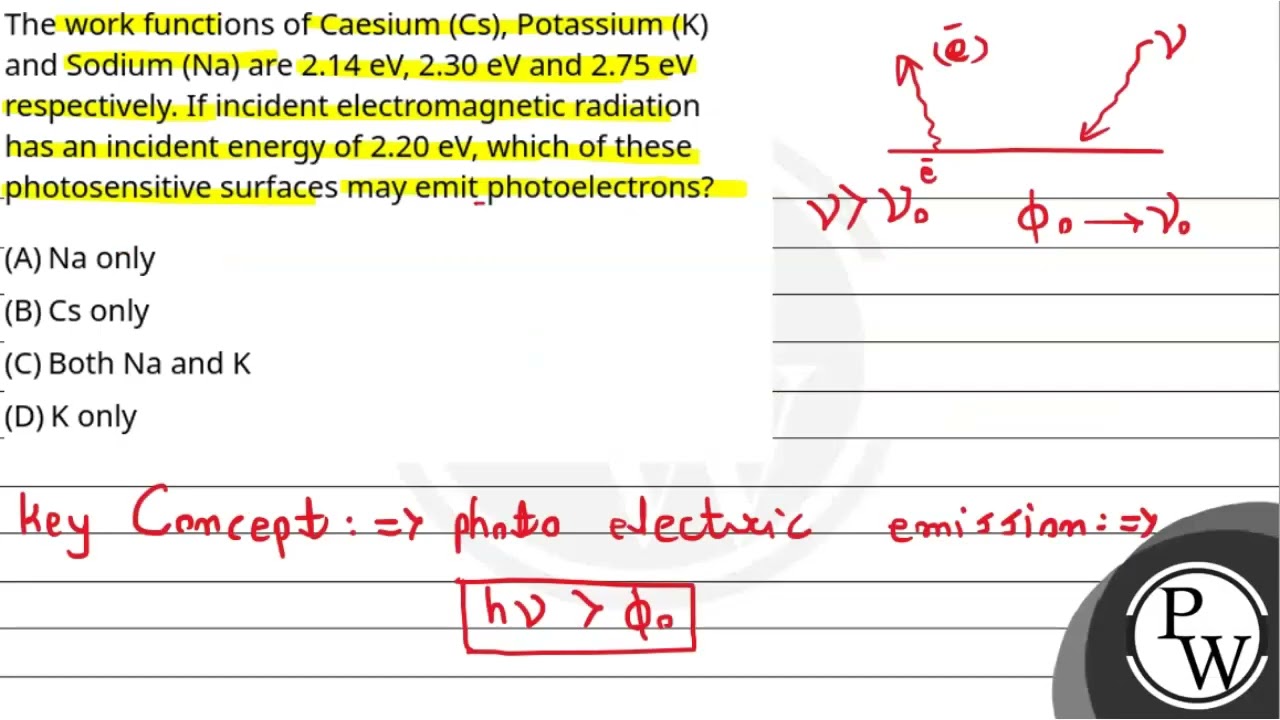 The work functions of Caesium (Cs), Potassium (K)
and Sodium (Na) are 2.14 eV, 2.30 eV and 2.75 eV
respectively. If incident electromagnetic radiation
has an incident energy of 2.20 eV, which of these
photosensitive surfaces may emit photoelectrons?
(ē) ν
ē
ν > ν₀ ϕ₀ → ν₀
(A) Na only
(B) Cs only
(C) Both Na and K
(D) K only
Key Concept: ⇒ photo electric emission: ⇒
hν > ϕ₀
P
W